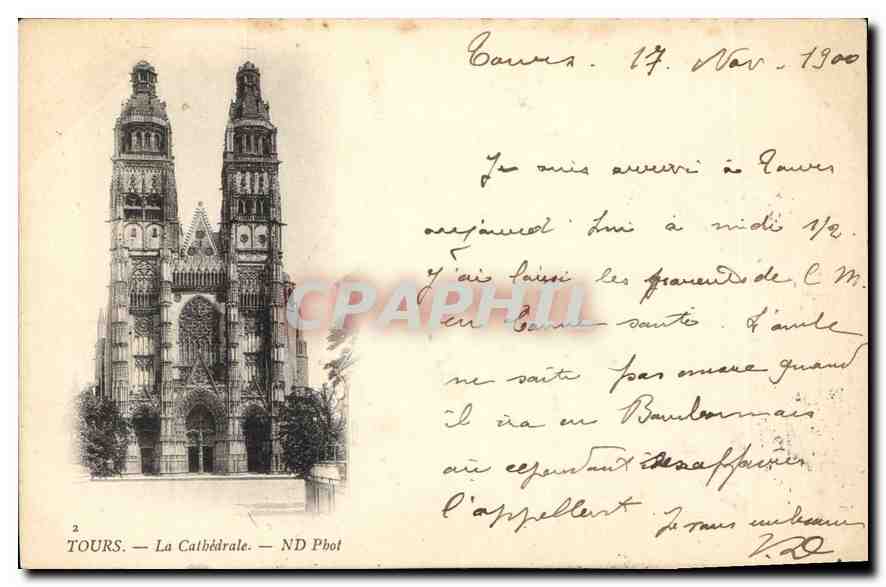 Tours. 17. Nov. 1900
Je suis arrivé à Tours
aujourd'hui à midi 1/2.
J'ai laissé les parents de C M.
en bonne santé.
ne sait pas encore quand
il ira en Bourbonnais
où cependant ses affaires
l'appellent. Je vous embrasse
V. D.
CPAPHIL
2
TOURS. — La Cathédrale. — ND Phot